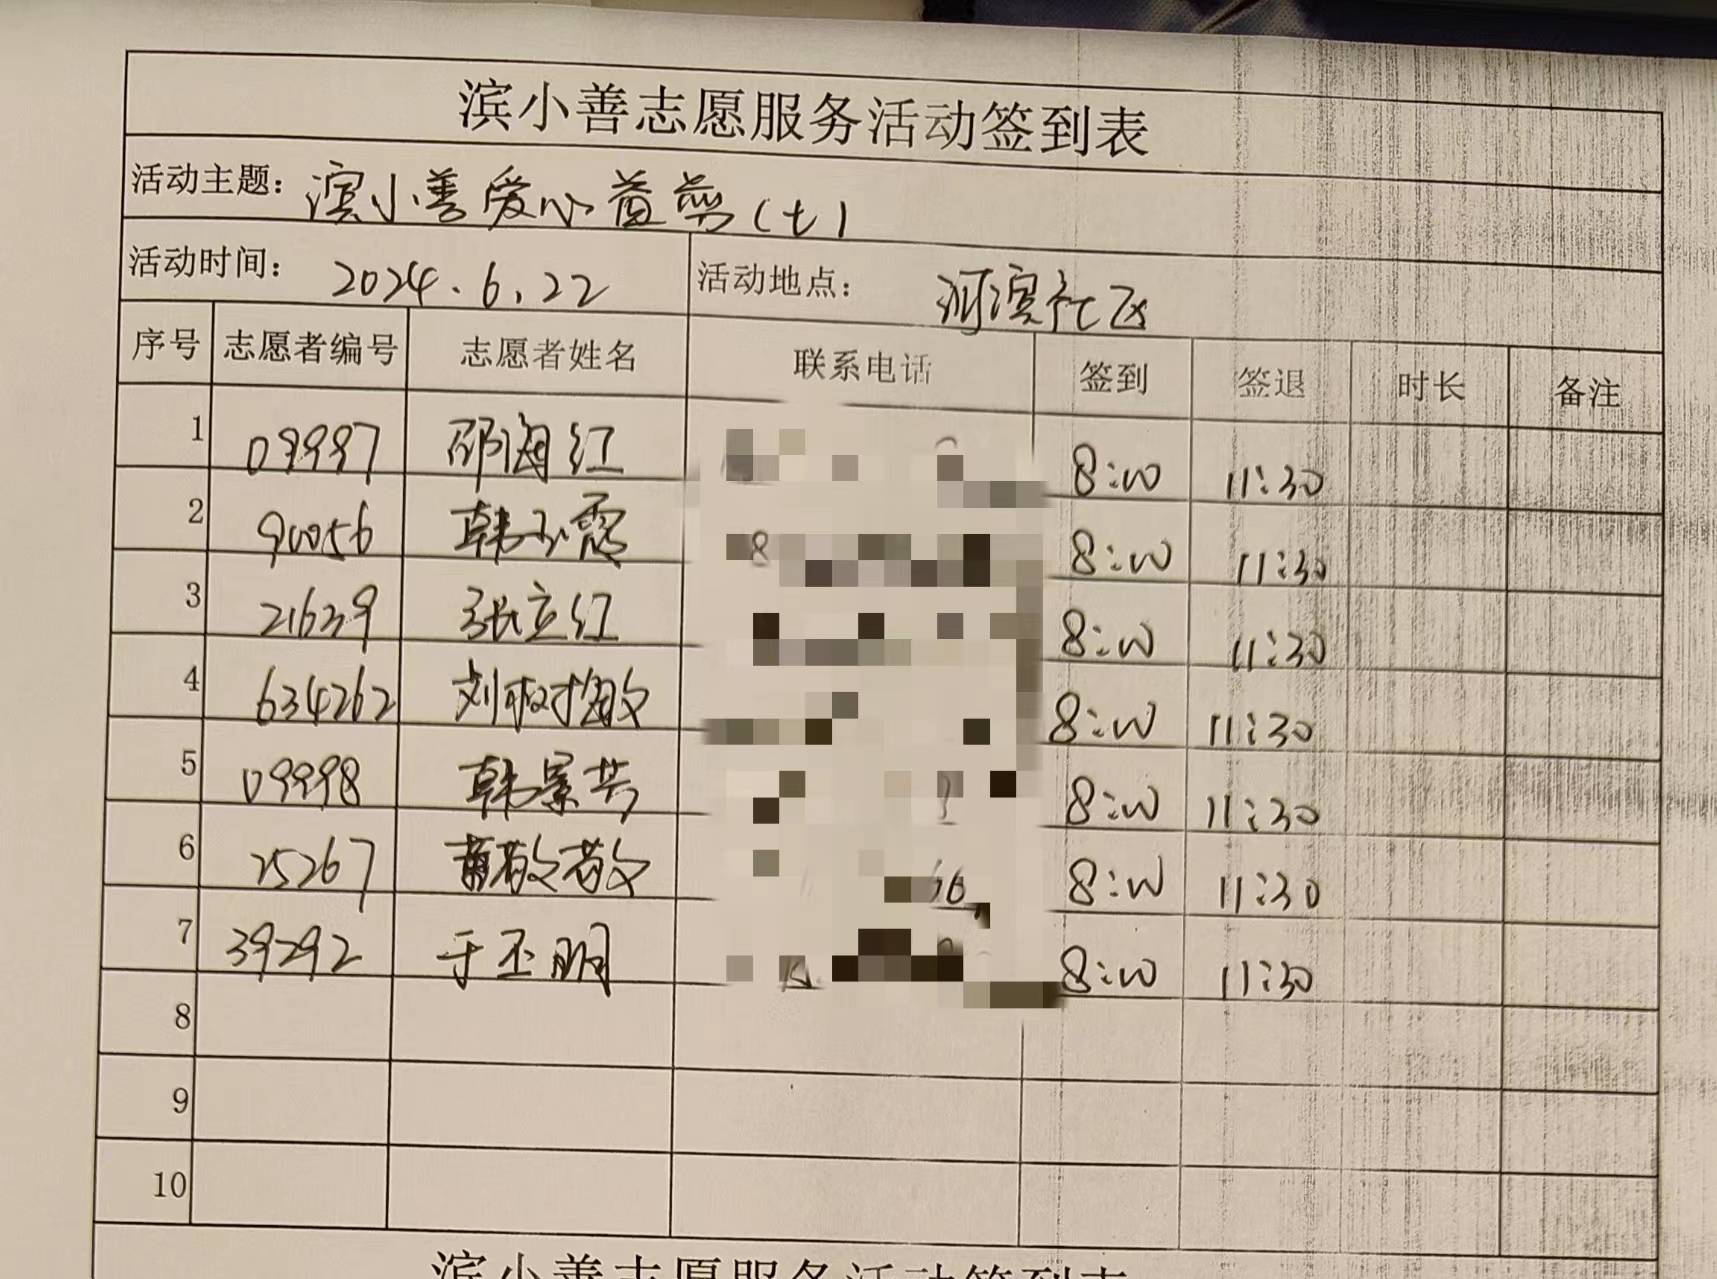 滨小善志愿服务活动签到表
活动主题: 滨小善爱心益剪(七)
活动时间: 2024.6.22 活动地点: 河滨社区
序号 志愿者编号 志愿者姓名 联系电话 签到 签退 时长 备注
1 09997 邵海红 8:00 11:30
2 90056 韩玉霞 8:00 11:30
3 21639 张立红 8:00 11:30
4 634262 刘树敏 8:00 11:30
5 09998 韩景芸 8:00 11:30
6 25267 8:00 11:30
7 39292 于丕明 8:00 11:30
8
9
10
滨小善志愿服务活动签到表